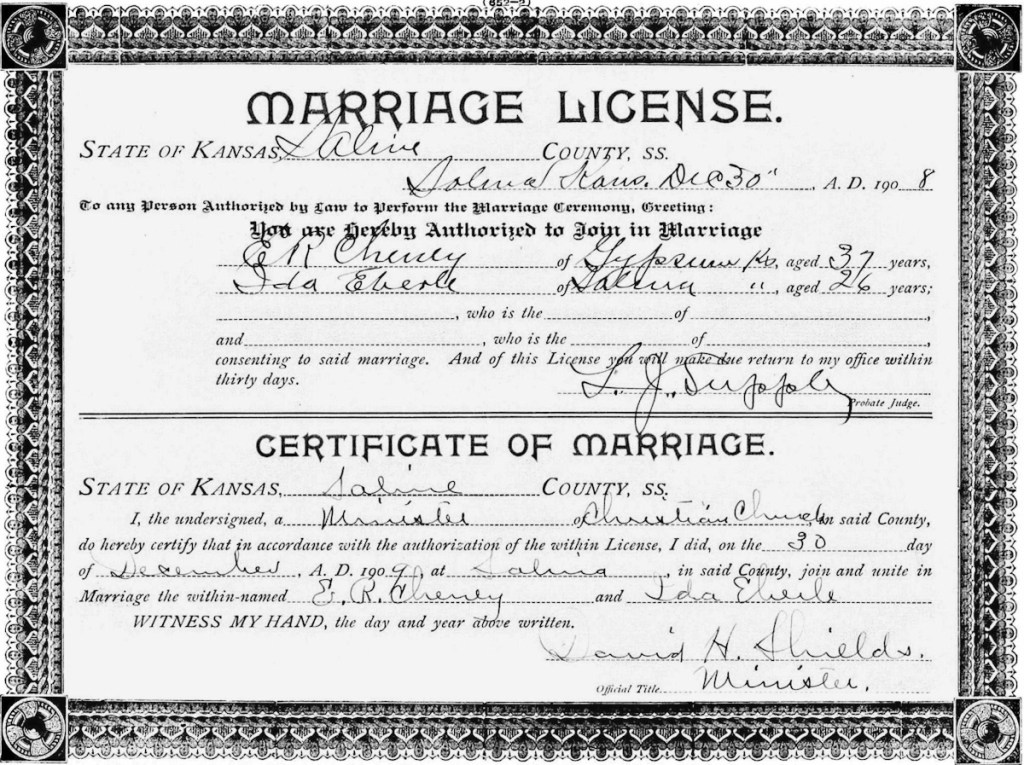 (652-2)
MARRIAGE LICENSE.
STATE OF KANSAS, Saline COUNTY, SS.
Salina Kans. Dec 30" , A. D. 1908
To any Person Authorized by Law to Perform the Marriage Ceremony, Greeting:
You are Hereby Authorized to Join in Marriage
E R Cheney of Gypsum Ks, aged 37 years,
Ida Eberle of Salina " , aged 26 years;
, who is the of ,
and , who is the of ,
consenting to said marriage. And of this License you will make due return to my office within
thirty days. L. J. Supple
Probate Judge.
CERTIFICATE OF MARRIAGE.
STATE OF KANSAS, Saline COUNTY, SS.
I, the undersigned, a Minister of Christian Church, in said County,
do hereby certify that in accordance with the authorization of the within License, I did, on the 30 day
of December , A. D. 1909, at Salina , in said County, join and unite in
Marriage the within-named E. R. Cheney and Ida Eberle
WITNESS MY HAND, the day and year above written.
David H. Shields.
Official Title. Minister.